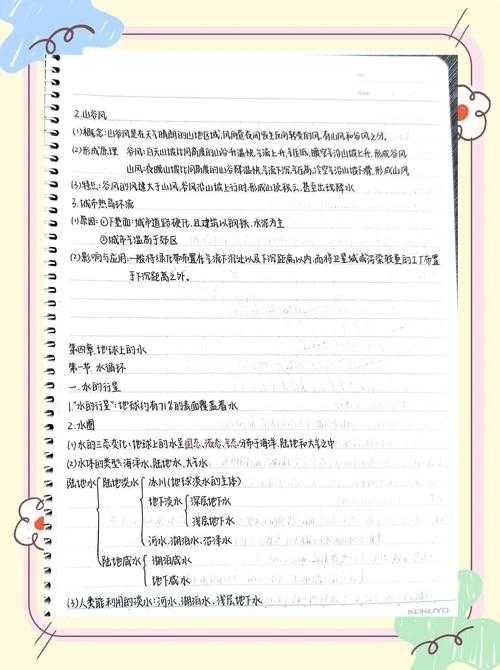 2.山谷风
(1)概念:山谷风是在天气晴朗的山地区域,风向昼夜间发生反向转变的风,有山风和谷风之分。
(2)形成原理 谷风:白天山坡比同高度的山谷升温快,气流上升,气压低,暖空气沿山坡上升,形成谷风
山风:夜晚山坡比同高度的山谷降温快,气流下沉,气压高,冷空气沿山坡下滑,形成山风
(3)特点:谷风的风速大于山风,谷风沿山坡上行时,形成山顶积云,甚至出现降水
3.城市热岛环流
(1)原因:①下垫面:城市道路硬化,且建筑以钢铁、水泥为主
②城市气温高于郊区
(2)影响与应用:一般将绿化带布置在气流下沉处以及下沉距离以内,而将卫星城或污染较重的工厂布置
于下沉距离之外。
第四章.地球上的水
第一节 水循环
一.水的行星
1."水的行星":地球约有71%的表面覆盖着水
2.水圈
(1)水的三态变化:地球上的水呈固态、液态、气态分布于海洋、陆地和大气之中
(2)水体的类型:海洋水、陆地水、大气水
陆地水 陆地淡水 冰川(地球淡水的主体)
地下淡水 深层地下水
浅层地下水
河水、湖泊水、沼泽水
陆地咸水 湖泊咸水
地下咸水
(3)人类能利用的淡水:河水、湖泊水、浅层地下水
KOKUYO